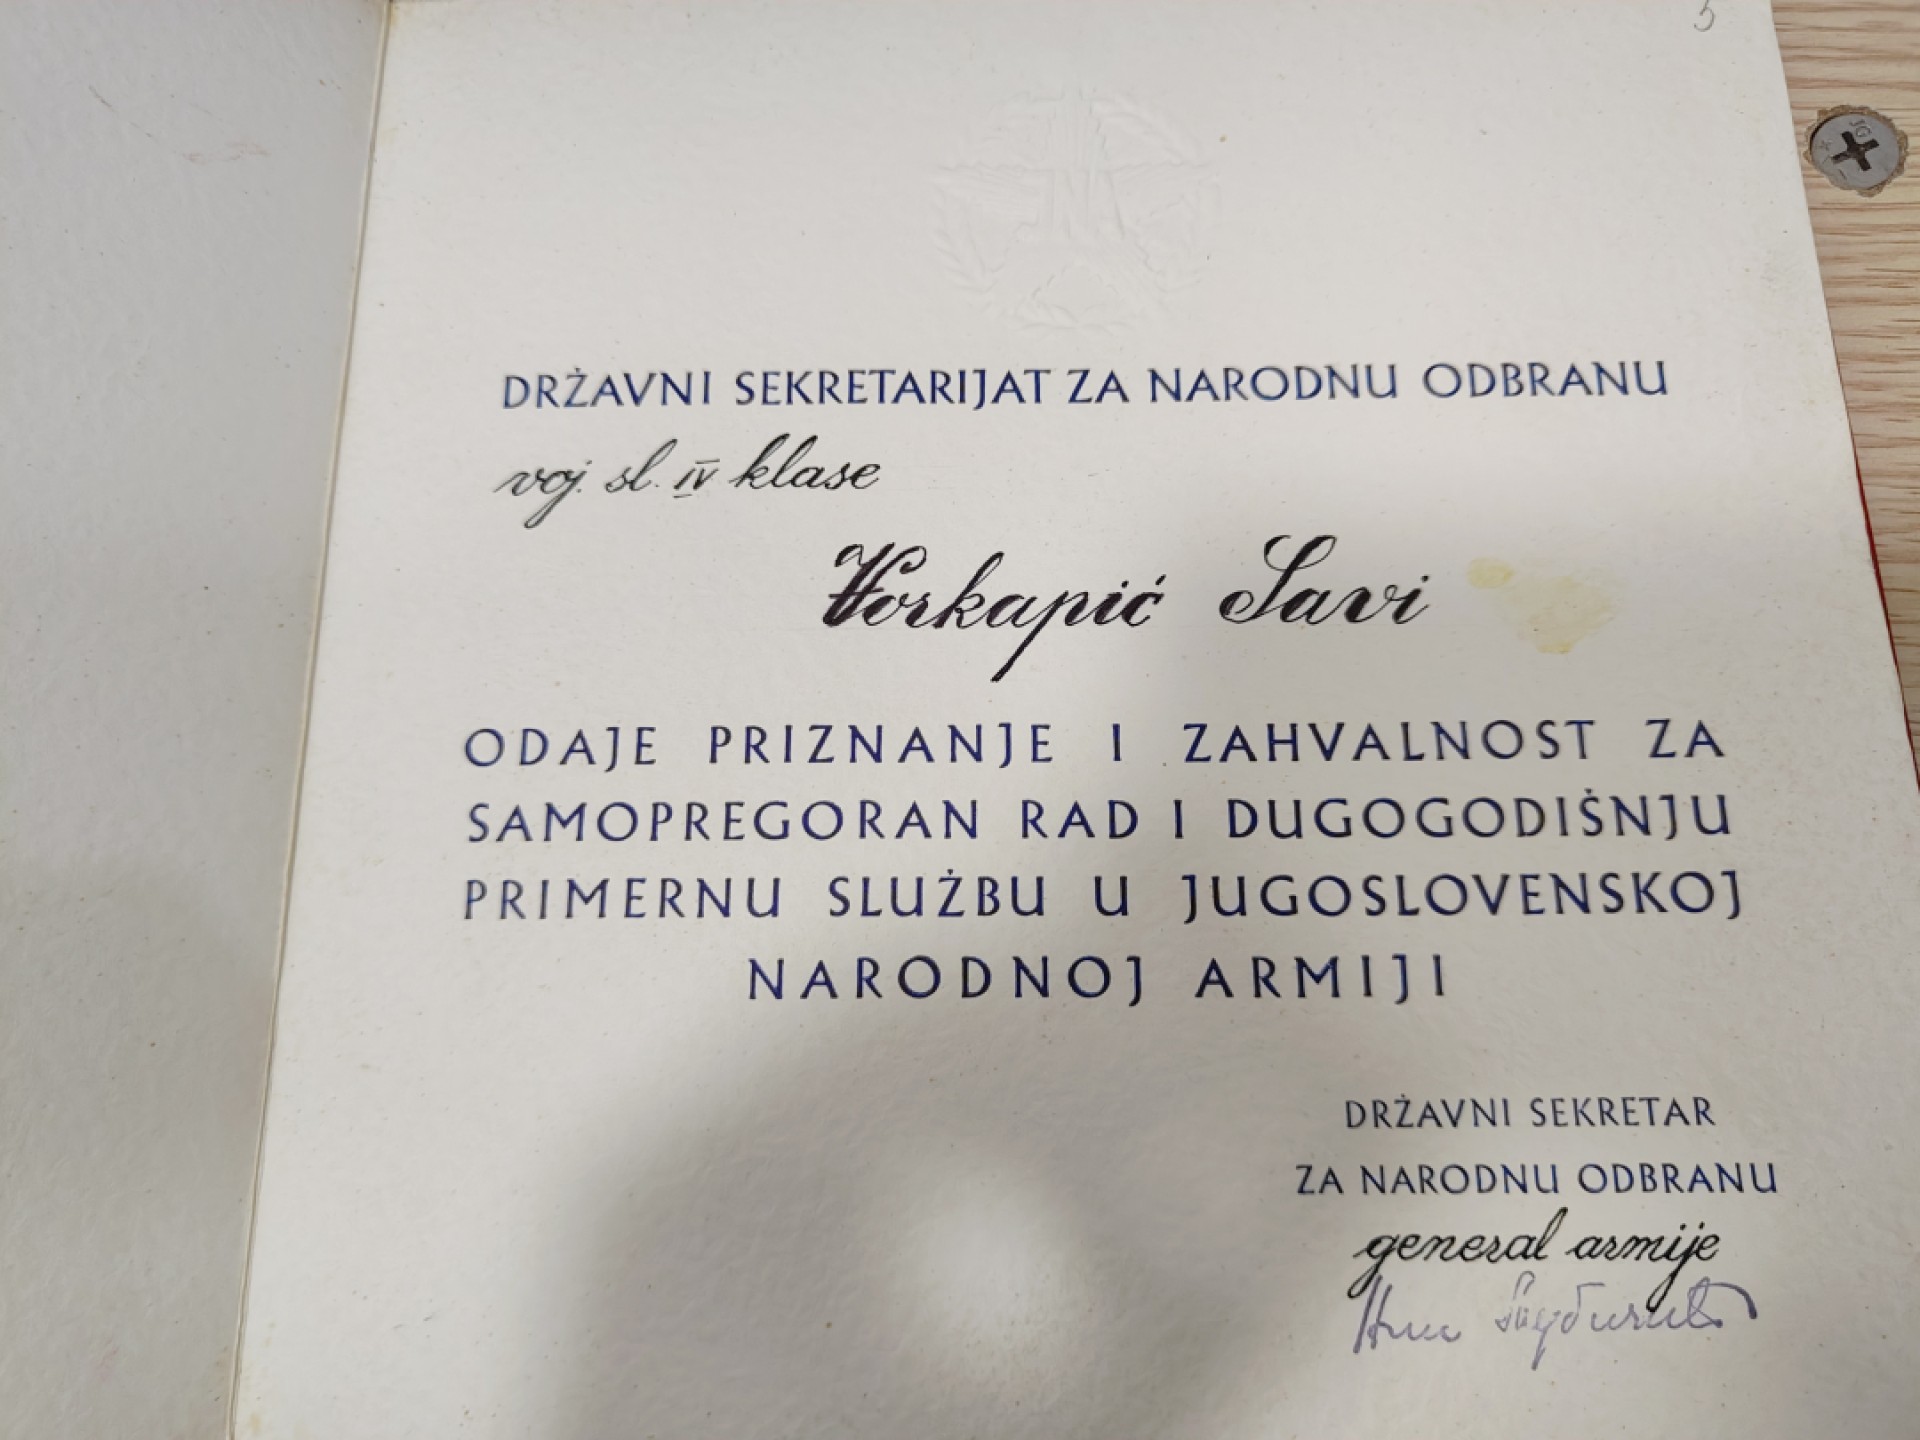 5
DRŽAVNI SEKRETARIJAT ZA NARODNU ODBRANU
voj. sl. IV klase
Vorkapić Savi
ODAJE PRIZNANJE I ZAHVALNOST ZA
SAMOPREGORAN RAD I DUGOGODIŠNJU
PRIMERNU SLUŽBU U JUGOSLOVENSKOJ
NARODNOJ ARMIJI
DRŽAVNI SEKRETAR
ZA NARODNU ODBRANU
general armije
JG